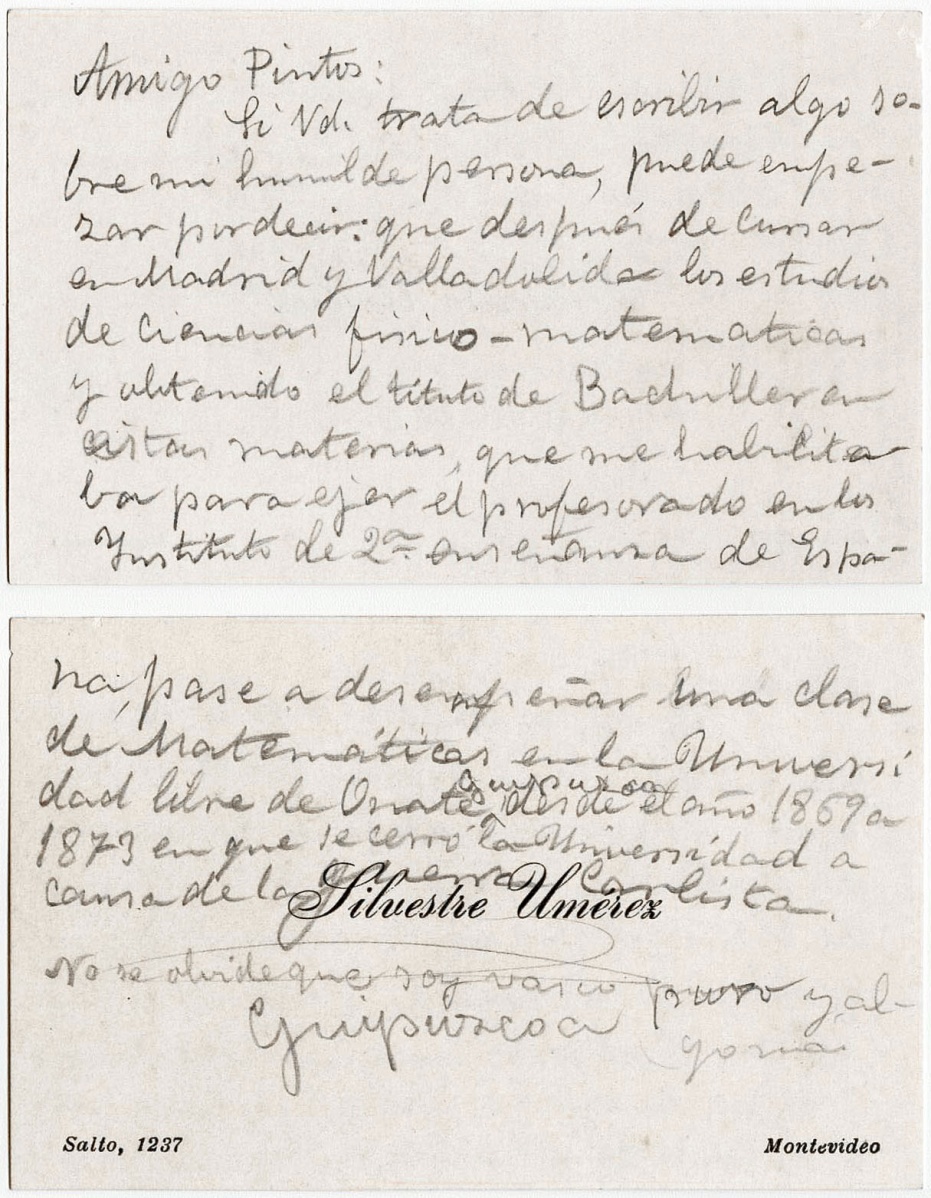 Amigo Pintos:
Si Vd. trata de escribir algo so-
bre mi humilde persona, puede empe-
zar por decir: que después de cursar
en Madrid y Valladolid los estudios
de Ciencias fisico-matematicas
y obtenido el título de Bachiller en
estas materias, que me habilita-
ba para ejer el profesorado en los
Instituto de 2ª enseñanza de Espa-
na, pase a desempeñar una clase
de Matemáticas en la Universi
dad libre de Onate, Guipuzcoa desde el año 1869 a
1873 en que se cerró la Universidad a
causa de la guerra Carlista.
Silvestre Umérez
No se olvide que soy vasco puro y al-
Guipuzcoa
Salto, 1237
Montevideo